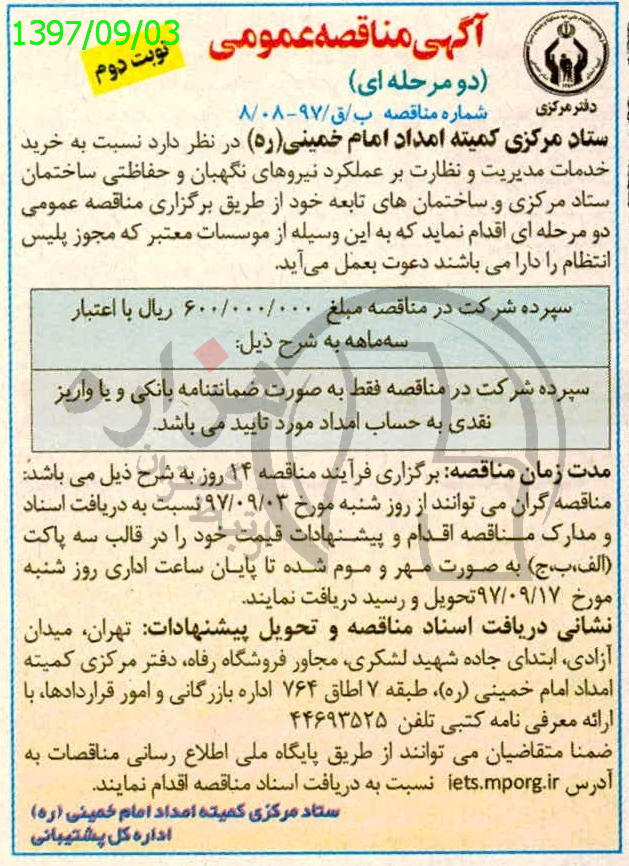 1397/09/03
آگهی مناقصه عمومی
نوبت دوم
(دو مرحله ای)
دفتر مرکزی
شماره مناقصه ب/ق/۹۷-۸/۰۸
ستاد مرکزی کمیته امداد امام خمینی(ره) در نظر دارد نسبت به خرید
خدمات مدیریت و نظارت بر عملکرد نیروهای نگهبان و حفاظتی ساختمان
ستاد مرکزی و ساختمان های تابعه خود از طریق برگزاری مناقصه عمومی
دو مرحله ای اقدام نماید که به این وسیله از موسسات معتبر که مجوز پلیس
انتظام را دارا می باشند دعوت بعمل می‌آید.
سپرده شرکت در مناقصه مبلغ ۶۰۰/۰۰۰/۰۰۰ ریال با اعتبار
سه‌ماهه به شرح ذیل:
سپرده شرکت در مناقصه فقط به صورت ضمانتنامه بانکی و یا واریز
نقدی به حساب امداد مورد تایید می باشد.
مدت زمان مناقصه: برگزاری فرآیند مناقصه ۱۴ روز به شرح ذیل می باشد:
مناقصه گران می توانند از روز شنبه مورخ ۹۷/۰۹/۰۳ نسبت به دریافت اسناد
و مدارک مناقصه اقدام و پیشنهادات قیمت خود را در قالب سه پاکت
(الف،ب،ج) به صورت مهر و موم شده تا پایان ساعت اداری روز شنبه
مورخ ۹۷/۰۹/۱۷تحویل و رسید دریافت نمایند.
نشانی دریافت اسناد مناقصه و تحویل پیشنهادات: تهران، میدان
آزادی، ابتدای جاده شهید لشکری، مجاور فروشگاه رفاه، دفتر مرکزی کمیته
امداد امام خمینی (ره)، طبقه ۷ اطاق ۷۶۴ اداره بازرگانی و امور قراردادها، با
ارائه معرفی نامه کتبی تلفن ۴۴۶۹۳۵۲۵
ضمنا متقاضیان می توانند از طریق پایگاه ملی اطلاع رسانی مناقصات به
آدرس iets.mporg.ir نسبت به دریافت اسناد مناقصه اقدام نمایند.
ستاد مرکزی کمیته امداد امام خمینی (ره)
اداره کل پشتیبانی